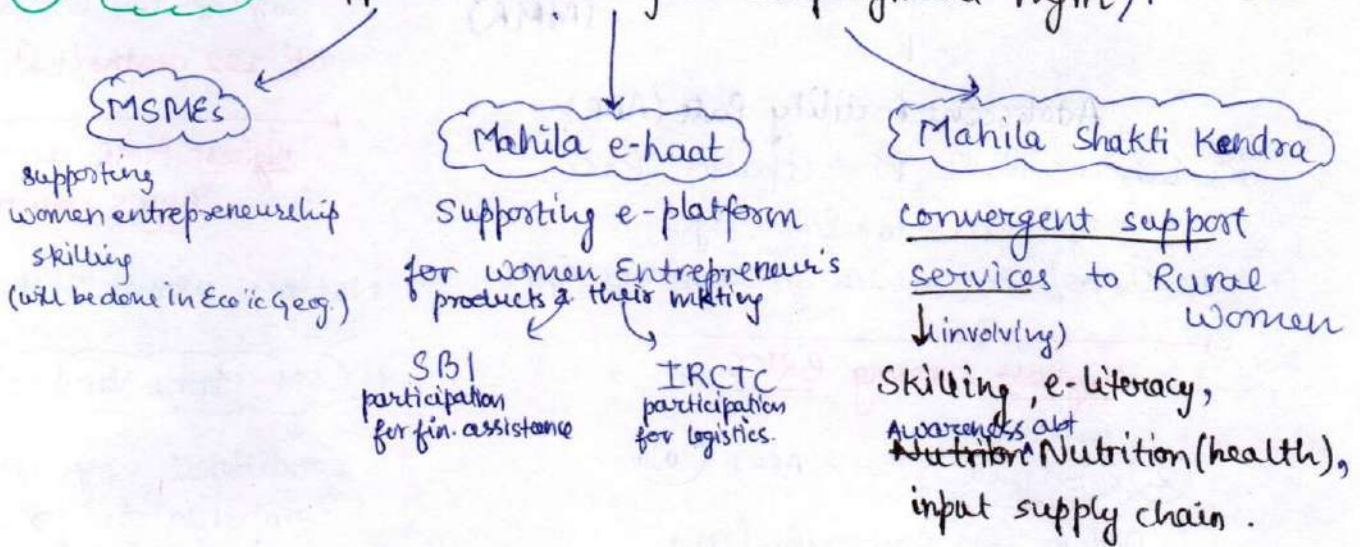 MSMEs
supporting
women entrepreneurship
skilling
(will be done in Eco'ic Geog.)
Mahila e-haat
Supporting e-platform
for women Entrepreneur's
products & their mkting
SBI
participation
for fin. assistance
IRCTC
participation
for logistics.
Mahila Shakti Kendra
convergent support
services to Rural
Women
(involving)
Skilling, e-literacy,
Awareness abt
Nutrition Nutrition (health),
input supply chain.